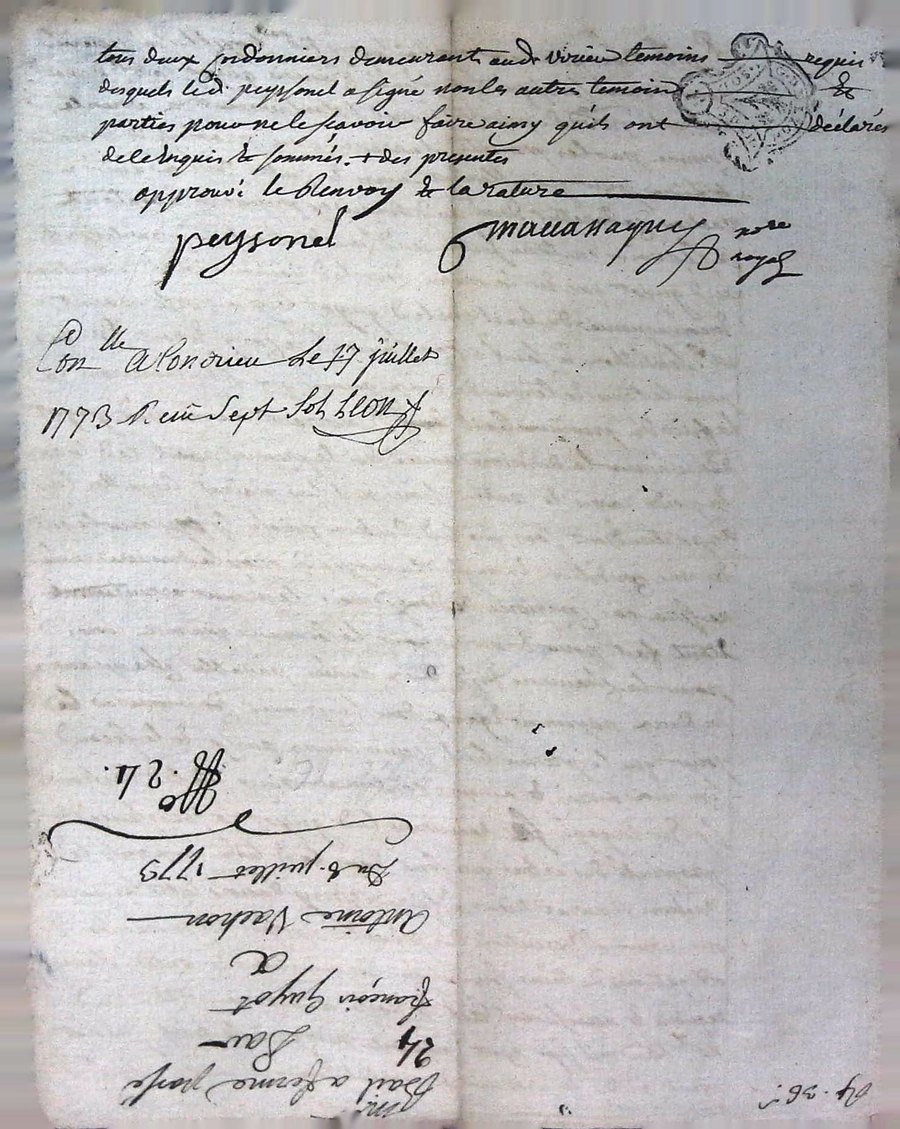 tous deux cordonniers demeurants aud. virieu temoins requis
desquels led. peyssonel a signé non les autres temoins &
parties pour ne le scavoir faire ainsy quils ont déclarés
de ce enquis & sommés. + des presentes
approuvé le Renvoy & la rature
peysonel
no.re
royal
Con.lle A Condrieu Le 17 juillet
1773 Reçu Sept Sols
Bail a ferme passé
24
Par
françois Guyot
a
Antoine Vachon
Du 8. juillet 1773
N.o 24.